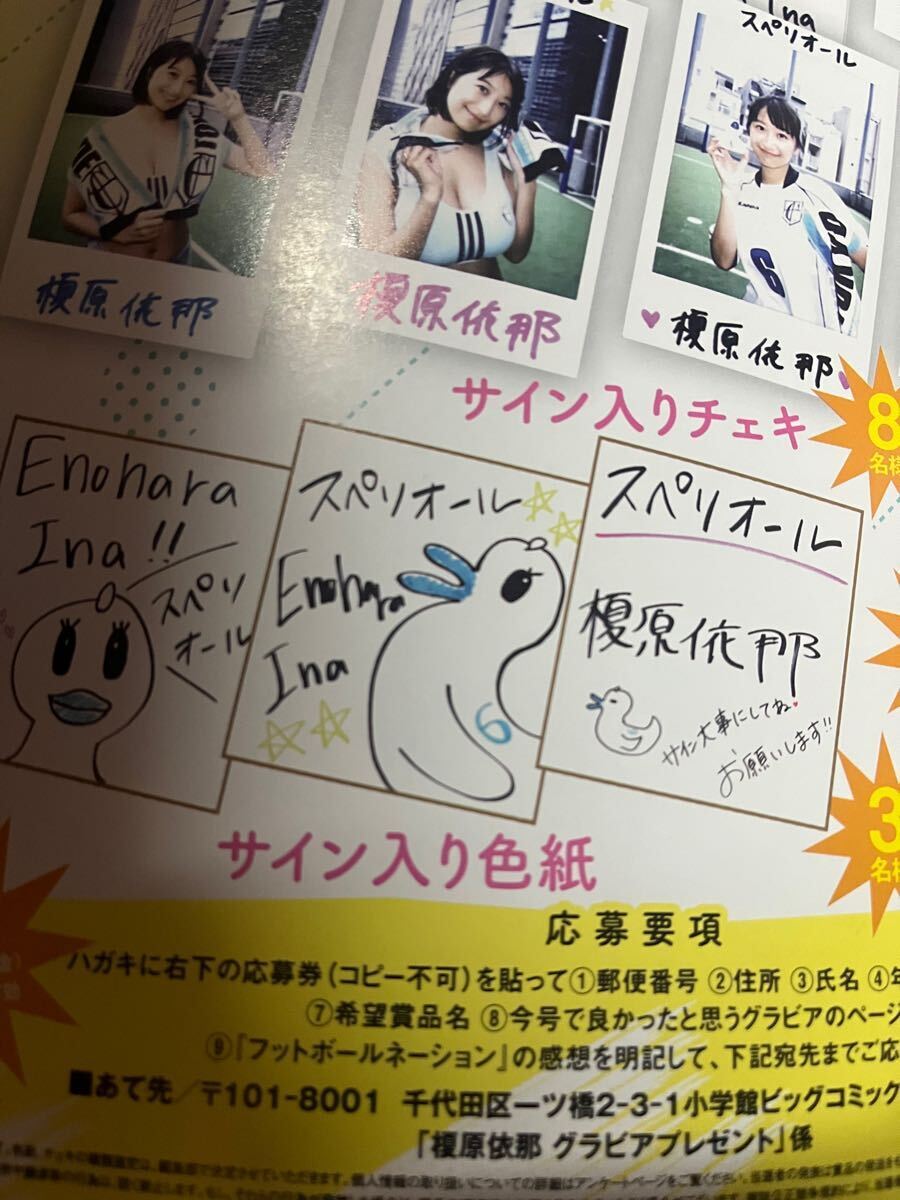 Ina
スペリオール
榎原依那
榎原依那
榎原依那
サイン入りチェキ
8
名様
Enohara
Ina!!
スペリ
オール
スペリオール
Enohara
Ina
6
スペリオール
榎原依那
サイン大事にしてね
お願いします!!
サイン入り色紙
3
名様
応募要項
ハガキに右下の応募券(コピー不可)を貼って①郵便番号 ②住所 ③氏名 ④年
⑦希望賞品名 ⑧今号で良かったと思うグラビアのページ
⑨『フットボールネーション』の感想を明記して、下記宛先までご応
■あて先/〒101-8001 千代田区一ツ橋2-3-1小学館ビッグコミック
「榎原依那 グラビアプレゼント」係